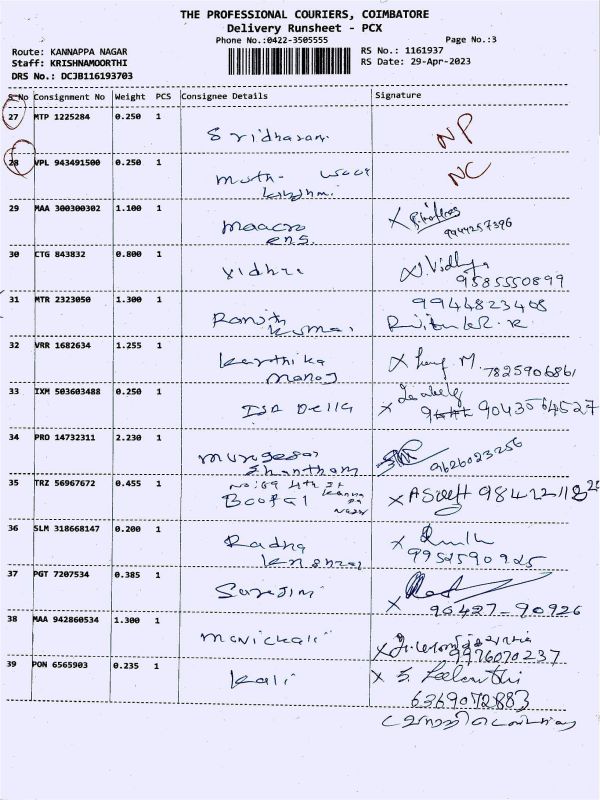 THE PROFESSIONAL COURIERS, COIMBATORE
Delivery Runsheet - PCX
Phone No.:0422-3505555
Page No.:3
Route: KANNAPPA NAGAR
Staff: KRISHNAMOORTHI
DRS No.: DCJB116193703
RS No.: 1161937
RS Date: 29-Apr-2023
S No Consignment No Weight PCS Consignee Details Signature
27 MTP 1225284 0.250 1
Sridharan NP
28 VPL 943491500 0.250 1
NC
29 MAA 300300302 1.100 1
ens. 9944257396
30 CTG 843832 0.800 1
Vidhya
N. Vidhya
9585550899
31 MTR 2323050 1.300 1
9944823408
Ranjith
Kumar
32 VRR 1682634 1.255 1
Karthika
Manoj
7825906861
33 IXM 503603488 0.250 1
9043564527
34 PRO 14732311 2.230 1
Murugesan
Shantham
9626023256
35 TRZ 56967672 0.455 1
No:69 4th St
Kanna
pa
Nagar
36 SLM 318668147 0.200 1
Radha
Krishnan
9952590925
37 PGT 7207534 0.385 1
Sarojini
96427-90926
38 MAA 942860534 1.300 1
9976070237
39 PON 6565903 0.235 1
Kali
6369072883